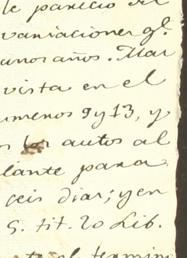 le parecio de
variaciones gl.
unos años. Mar
vista en el
umenos 9 y 13, y
s los autos al
lante para
seis dias; y en
5. tit. 20 Lib.
el termin